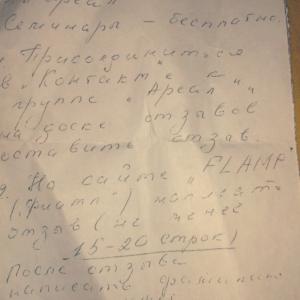 Ареал"
Семинары - бесплатно.
Присоединиться
в „Контакт" к
группе „Ареал",
на доске отзывов
оставить отзыв.
На сайте „FLAMP"
(„Фламп") написать
отзыв (не менее
15-20 строк)
После отзыва
написать фамилию